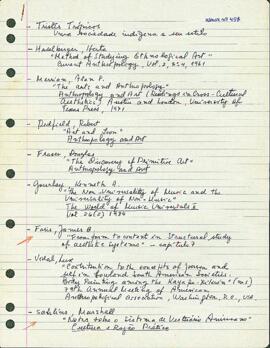 - Tristes Trópicos
Uma sociedade indígena e seu estilo
- Haselberger, Herta
"Method of Studying Ethnological Art"
Current Anthropology, Vol. 2, nº 4, 1961
- Merriam, Alan P.
"The arts and Anthropology"
Anthropology and Art (Readings in Cross-Cultural
Aesthetics) Austin and London, University of
Texas Press, 1971
- Redfield, Robert
"Art and Icon"
Anthropology and Art
- Fraser, Douglas
"The Discovery of Primitive Art"
Anthropology and Art
- Gourlay, Kenneth A.
"The Non-Universality of Music and the
Universality of Non-Music"
The World of Music
Vol. 26(2) 1984
- Faris, James B.
"From form to content in the structural study
of aesthetic systems" - capítulo 7
- Vidal, Lux
"Contribution to the concepts of person and
self in Lowland South American Societies:
Body Painting among the Kayapo-Xikrin" (ms)
Annual Meeting of American
Anthropological Association, Washington, D.C., USA.
- Sahlins, Marshall
"Notas sobre o Sistema de Vestuário Americano"
Cultura e Razão Prática